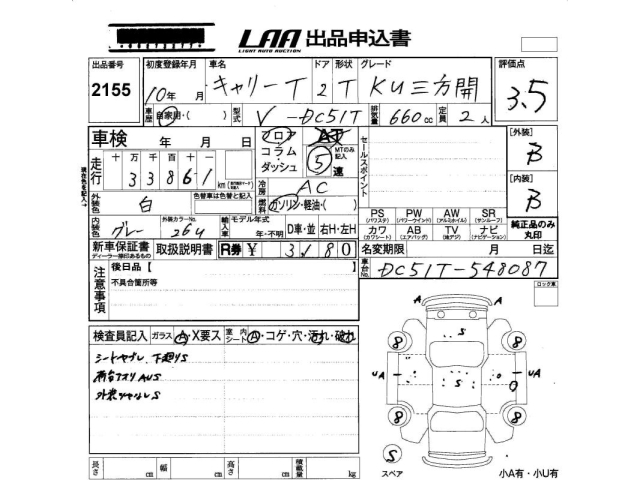 LAA 出品申込書
LIGHT AUTO AUCTION
出品番号 初度登録年月 車名 ドア 形状 グレード 評価点
2155 10年 月 キャリーT 2 T KU三方開 3.5
車歴 自家用・( ) 型式 V-DC51T 排気量 660cc 定員 2人
車検 年 月 日
フロア コラム・ダッシュ
AT MTのみ記入 5 速
セールスポイント
[外装] B
現在色を記入→
走行 十 万 千 百 十 一
33861 km
冷房 AC
[内装] B
外装色 白 色替車は色替と記入
燃料 ガソリン・軽油・( )
内装色 グレー 外装カラーNo. 26U
輸入車 モデル年式 年・不明 D車・並 右H・左H
PS (パワステ) PW (パワーウインド) AW (アルミホイル) SR (サンルーフ)
カワ (カワシート) AB (エアバッグ) TV (地デジ) ナビ (ナビゲーション)
純正品のみ丸印
新車保証書 ディーラー捺印あるもの 取扱説明書 R券 ¥ 3180
名変期限 月 日迄
注意事項 後日品【
不具合箇所等
車台No. DC51T-548087
ロック車
検査員記入 ガラス A・X要ス 室内シート A・コゲ・穴・汚れ・破れ
シートヤブレ、下廻りS
荷台アオリAUS
外装リヤバルS
A A
S
8 8
UA S UA
8 8
S
スペア
小A有・小U有
長さ cm 幅 cm 高さ cm 積載量 kg